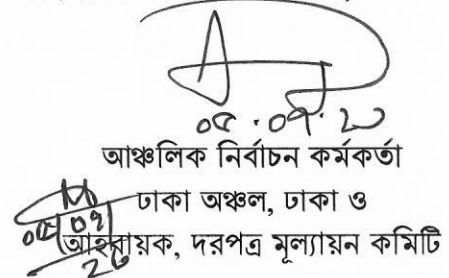 ০৫.০৭.২০
আঞ্চলিক নির্বাচন কর্মকর্তা
ঢাকা অঞ্চল, ঢাকা ও
আহবায়ক, দরপত্র মূল্যায়ন কমিটি